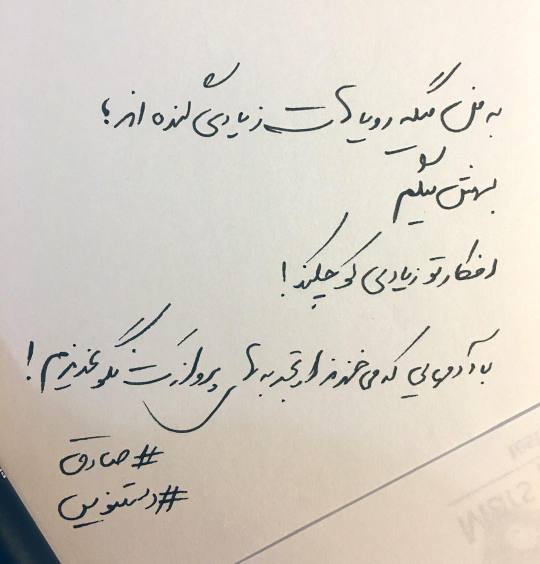 به من میگه رویاهات زیادی گنده اند؛
بهش میگم
افکار تو زیادی کوچیکند!
با آدمهایی که می خندند از تجربه های پروازت نگو عزیزم!
#صادق
#دستنویس